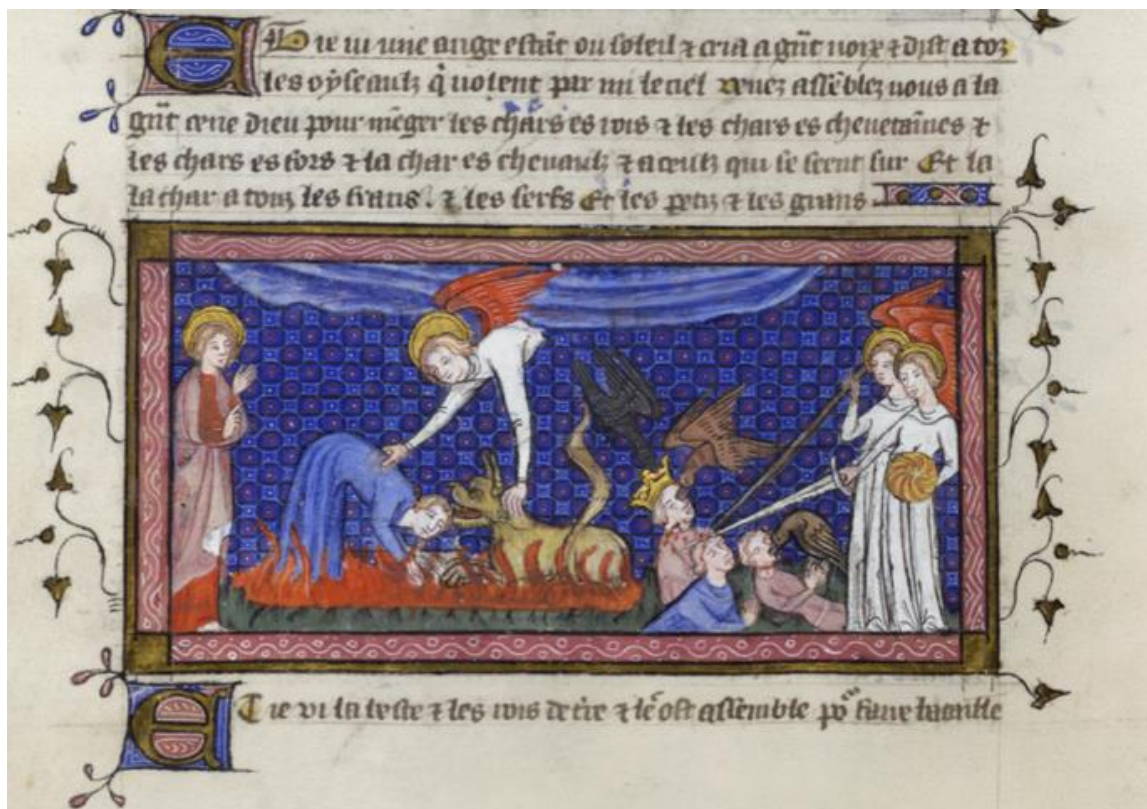 Et ie ui une ange estāt ou soleil ⁊ cria a gāt uoix ⁊ dist a toz
les oyseaulz q̄ uolent par mi le ciel venez assēblez uous a la
gāt cene dieu pour mēger les chars es rois ⁊ les chars es cheuetaīnes ⁊
les chars es fors ⁊ la char es cheuaulz ⁊ a ceulz qui se seent sur Et la
la char a touz les frans . ⁊ les serfs Et les petiz ⁊ les grans
Et ie vi la beste ⁊ les rois de tr̄e ⁊ lē ost assemble po᷑ faire bataille